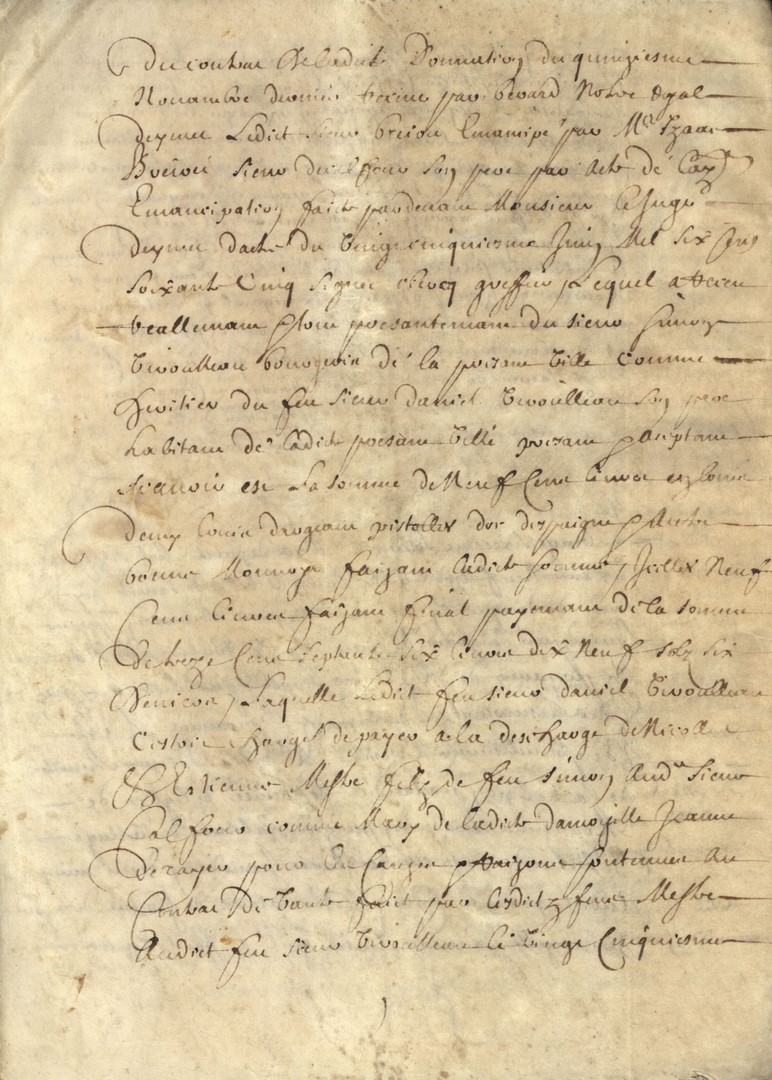 du contrac de ladicte Donnation du quinziesme
Novambre dernier par Bevard No're Royal
Ledict sieur Emancipé par Me Izaac
sieur du son pere par Acte de
Emancipation faicte pardevant Monsieur le Juge
datté du vingt cinquiesme Juin Mil Six Cens
soixante Cinq signé greffier, Lequel a
reallemant presantemant du sieur Simon
Trivoulleau bourgeois de la presant ville comme
heritier du feu sieur daniel Trivoulleau son pere
habitant de ladicte presant ville presant acseptant
scavoir est La somme de Neuf Cens livres en louis
d'argeant pistolles d'or d'espaigne
bonne Monnoye faizant ladicte somme, Icelles Neuf
Cens livres faizant final payemant de la somme
de treze Cens septante six livres dix Neuf solz six
deniers, Laquelle Ledict feu sieur daniel Trivoulleau
estoit chargé de payer a la descharge de Nicollas
& Estienne Mestre filz de feu Simon Audt sieur
comme Mary de ladicte damoizelle Jeanne
pour les Cauzes & Raizons contenues au
Contrac de vante faict par lesdictz feus Mestre
Audict feu sieur Trivoulleau le vingt Cinquiesme